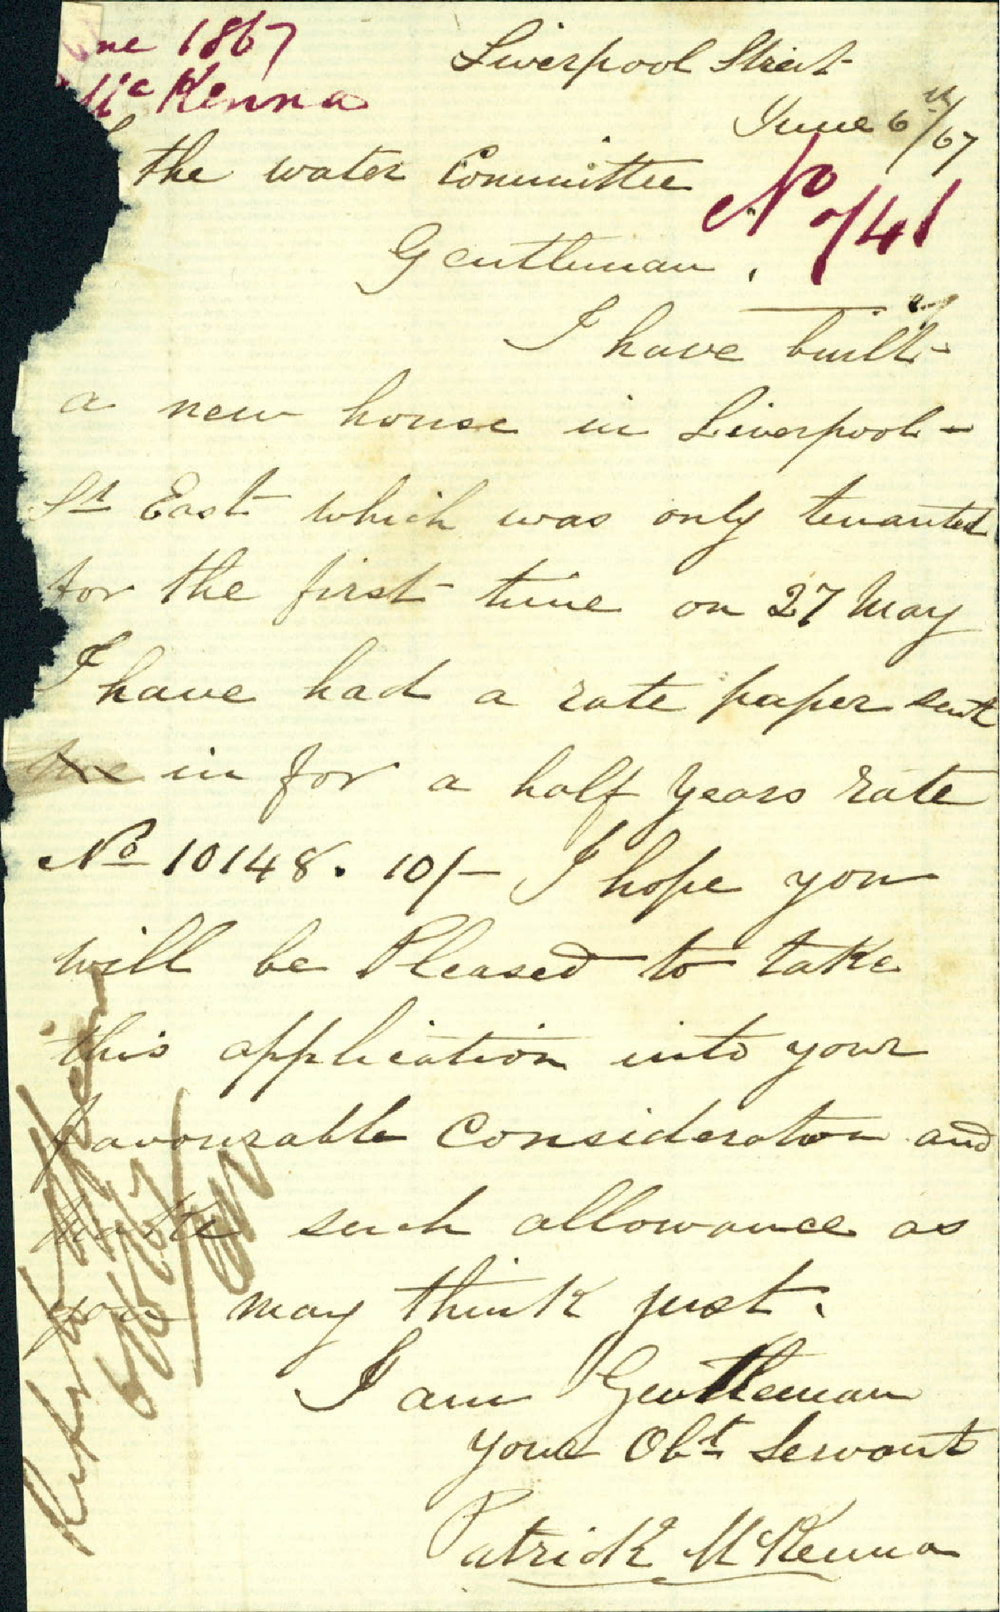 ne 1867
McKenna
Liverpool Street
June 6th/67
the water Committee
No 741
Gentleman,
I have built
a new house in Liverpool-
St East which was only tenanted
for the first time on 27 May
I have had a rate paper sent
in for a half years rate
No 10148. 10/- I hope you
will be Pleased to take
this application into your
favourable Consideraton and
make such allowance as
you may think just.
I am Gentleman
your Obt Servant
Patrick McKenna
6/6/67